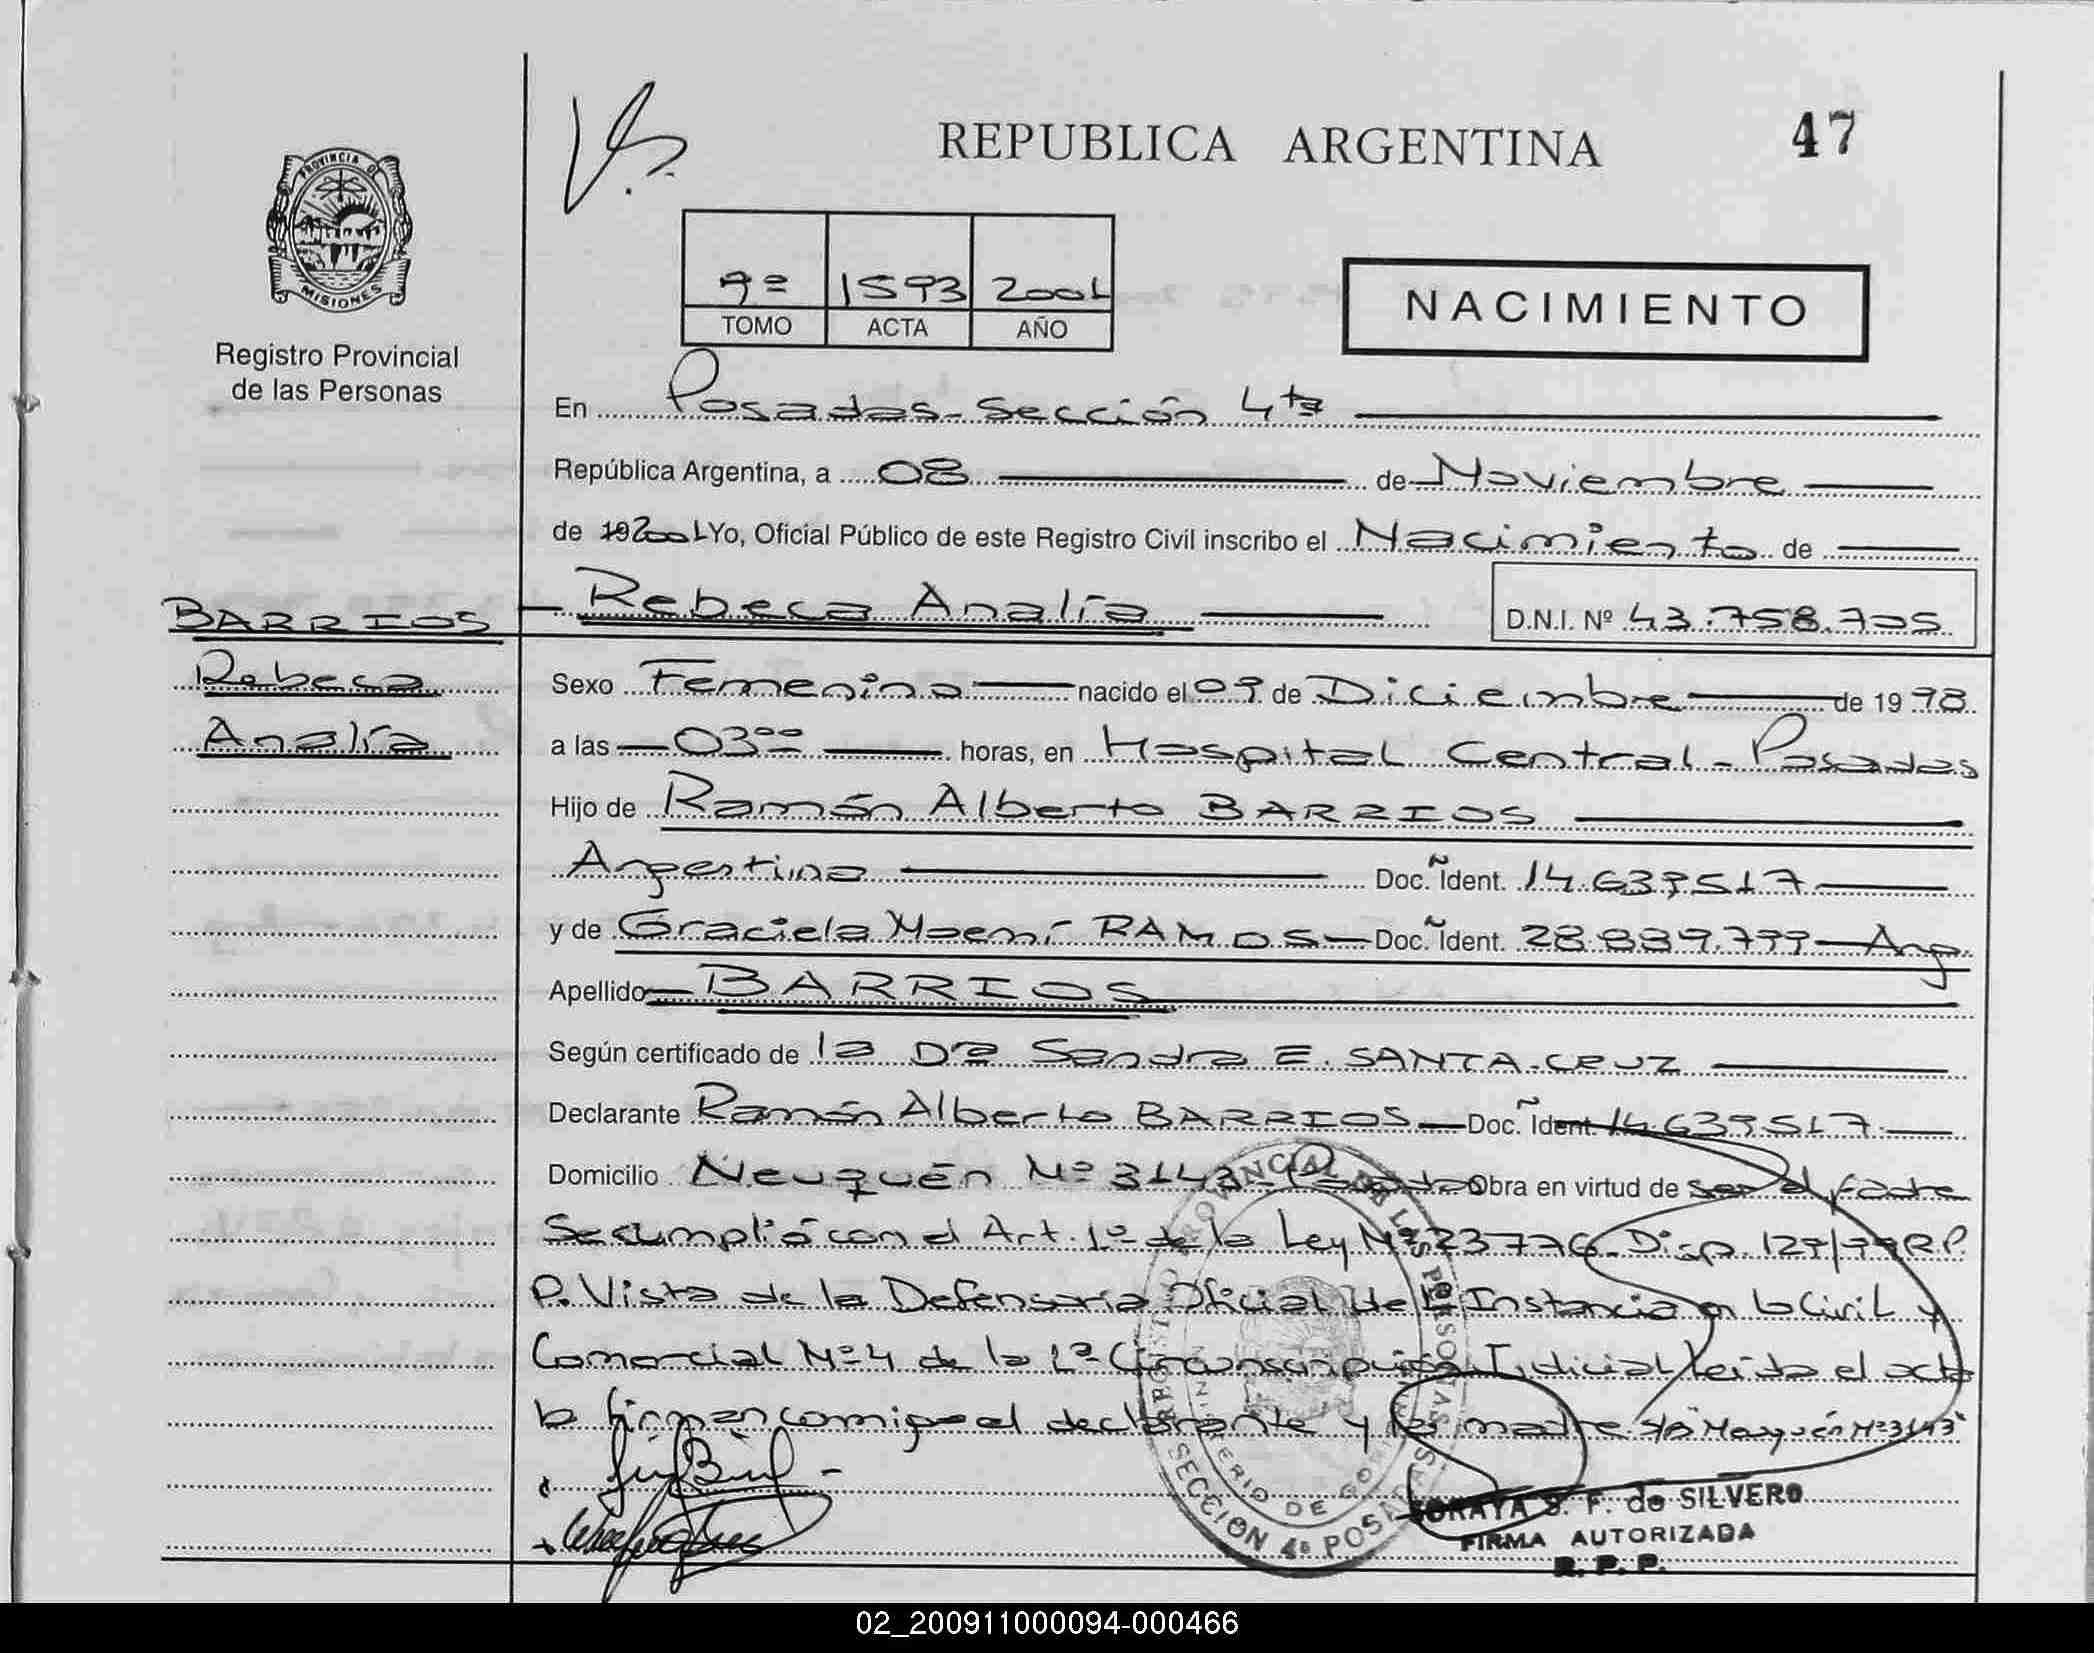 V.S.
REPUBLICA ARGENTINA
47
PROVINCIA DE MISIONES
Registro Provincial
de las Personas
1593 2001
TOMO ACTA AÑO
NACIMIENTO
En Posadas-Sección 4ta
República Argentina, a 08 de Noviembre
de 19 2001 Yo, Oficial Público de este Registro Civil inscribo el Nacimiento de
BARRIOS Rebeca Analía D.N.I. Nº 43.758.705
Rebeca Sexo Femenino nacido el 09 de Diciembre de 1998
Analía a las 03ºº horas, en Hospital Central - Posadas
Hijo de Ramón Alberto BARRIOS
Argentino Doc. Ident. 14.639517
y de Graciela Noemí RAMOS - Doc. Ident. 28.839.799 - Arg.
Apellido BARRIOS
Según certificado de la Dra Sandra E. SANTA CRUZ
Declarante Ramón Alberto BARRIOS - Doc. Ident. 14.639517
Domicilio Neuquén Nº 3143 - Posadas Obra en virtud de ser el padre
Se cumplió con el Art. 1º de la Ley Nº 23776 - Disp. 129/99 R.P.
P. Vista de la Defensoría Oficial de 1ª Instancia en lo Civil y
Comercial Nº 4 de la 1ª Circunscripción Judicial leída el acta
la firman conmigo el declarante y la madre Nº3143
REGISTRO PROVINCIAL DE LAS PERSONAS
MINISTERIO DE GOBIERNO
SECCION 4ª POSADAS
SORAYA S. F. de SILVERO
FIRMA AUTORIZADA
R. P. P.
02_200911000094-000466